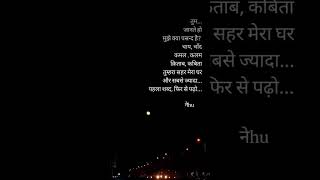 तुम...
जानते हो
मुझे क्या पसन्द है?
चाय, चाँद
कमल . कलम
किताब, कविता
तुम्हारा सहर मेरा घर
और सबसे ज्यादा...
पहला शब्द, फिर से पढ़ो...
नेhu
कमल . कलम
किताब, कविता
सहर मेरा घर
सबसे ज्यादा...
फिर से पढ़ो...
नेhu